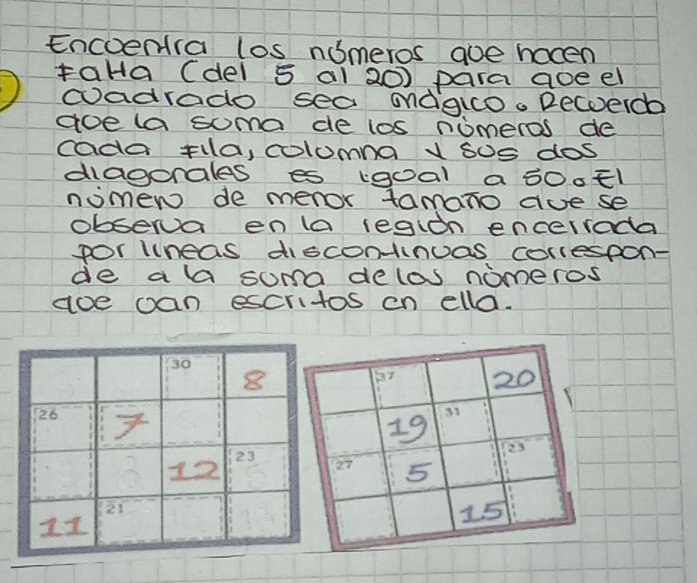 Encuentra los números que hacen
falta (del 5 al 20) para que el
cuadrado sea mágico. Recuerda
que la suma de los números de
cada fila, columna y sus dos
diagonales es igual a 50. El
número de menor tamaño que se
observa en la región encerrada
por líneas discontinuas correspon-
de a la suma de los números
que van escritos en ella.
30 8
26 7
12 23
11 21
37 20
19 31
27 5 23
15